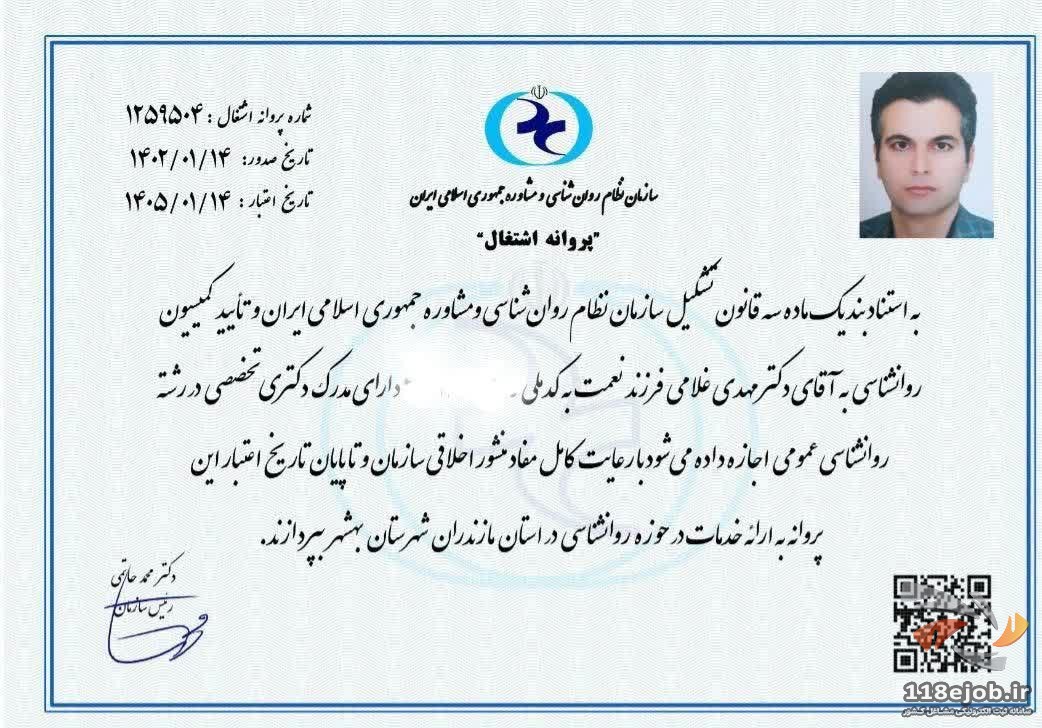 شماره پروانه اشتغال : ۱۲۵۹۵۰۴
تاریخ صدور: ۱۴۰۲/۰۱/۱۴
تاریخ اعتبار : ۱۴۰۵/۰۱/۱۴
سازمان نظام روان‌شناسی و مشاوره جمهوری اسلامی ایران
"پروانه اشتغال"
به استناد بند یک ماده سه قانون تشکیل سازمان نظام روان‌شناسی و مشاوره جمهوری اسلامی ایران و تأیید کمیسیون
روانشناسی به آقای دکتر مهدی غلامی فرزند نعمت به کد ملی دارای مدرک دکتری تخصصی در رشته
روانشناسی عمومی اجازه داده می‌شود با رعایت کامل مفاد منشور اخلاقی سازمان و تا پایان تاریخ اعتبار این
پروانه به ارائه خدمات در حوزه روانشناسی در استان مازندران شهرستان بهشهر بپردازند.
دکتر محمد حاتمی
رئیس سازمان
118ejob.ir
سامانه ثبت الکترونیکی مشاغل کشور